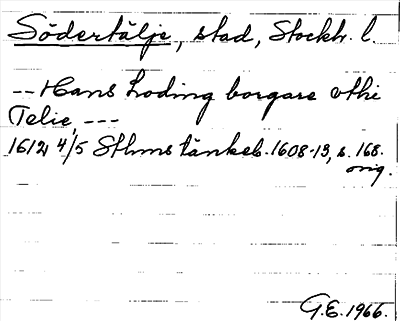 Södertälje, stad, Stockh. l.
-- Hans Loding borgare vthi
Telie, ---
1612 4/5 Sthms tänkeb. 1608-13, s. 168.
orig.
G.E. 1966.